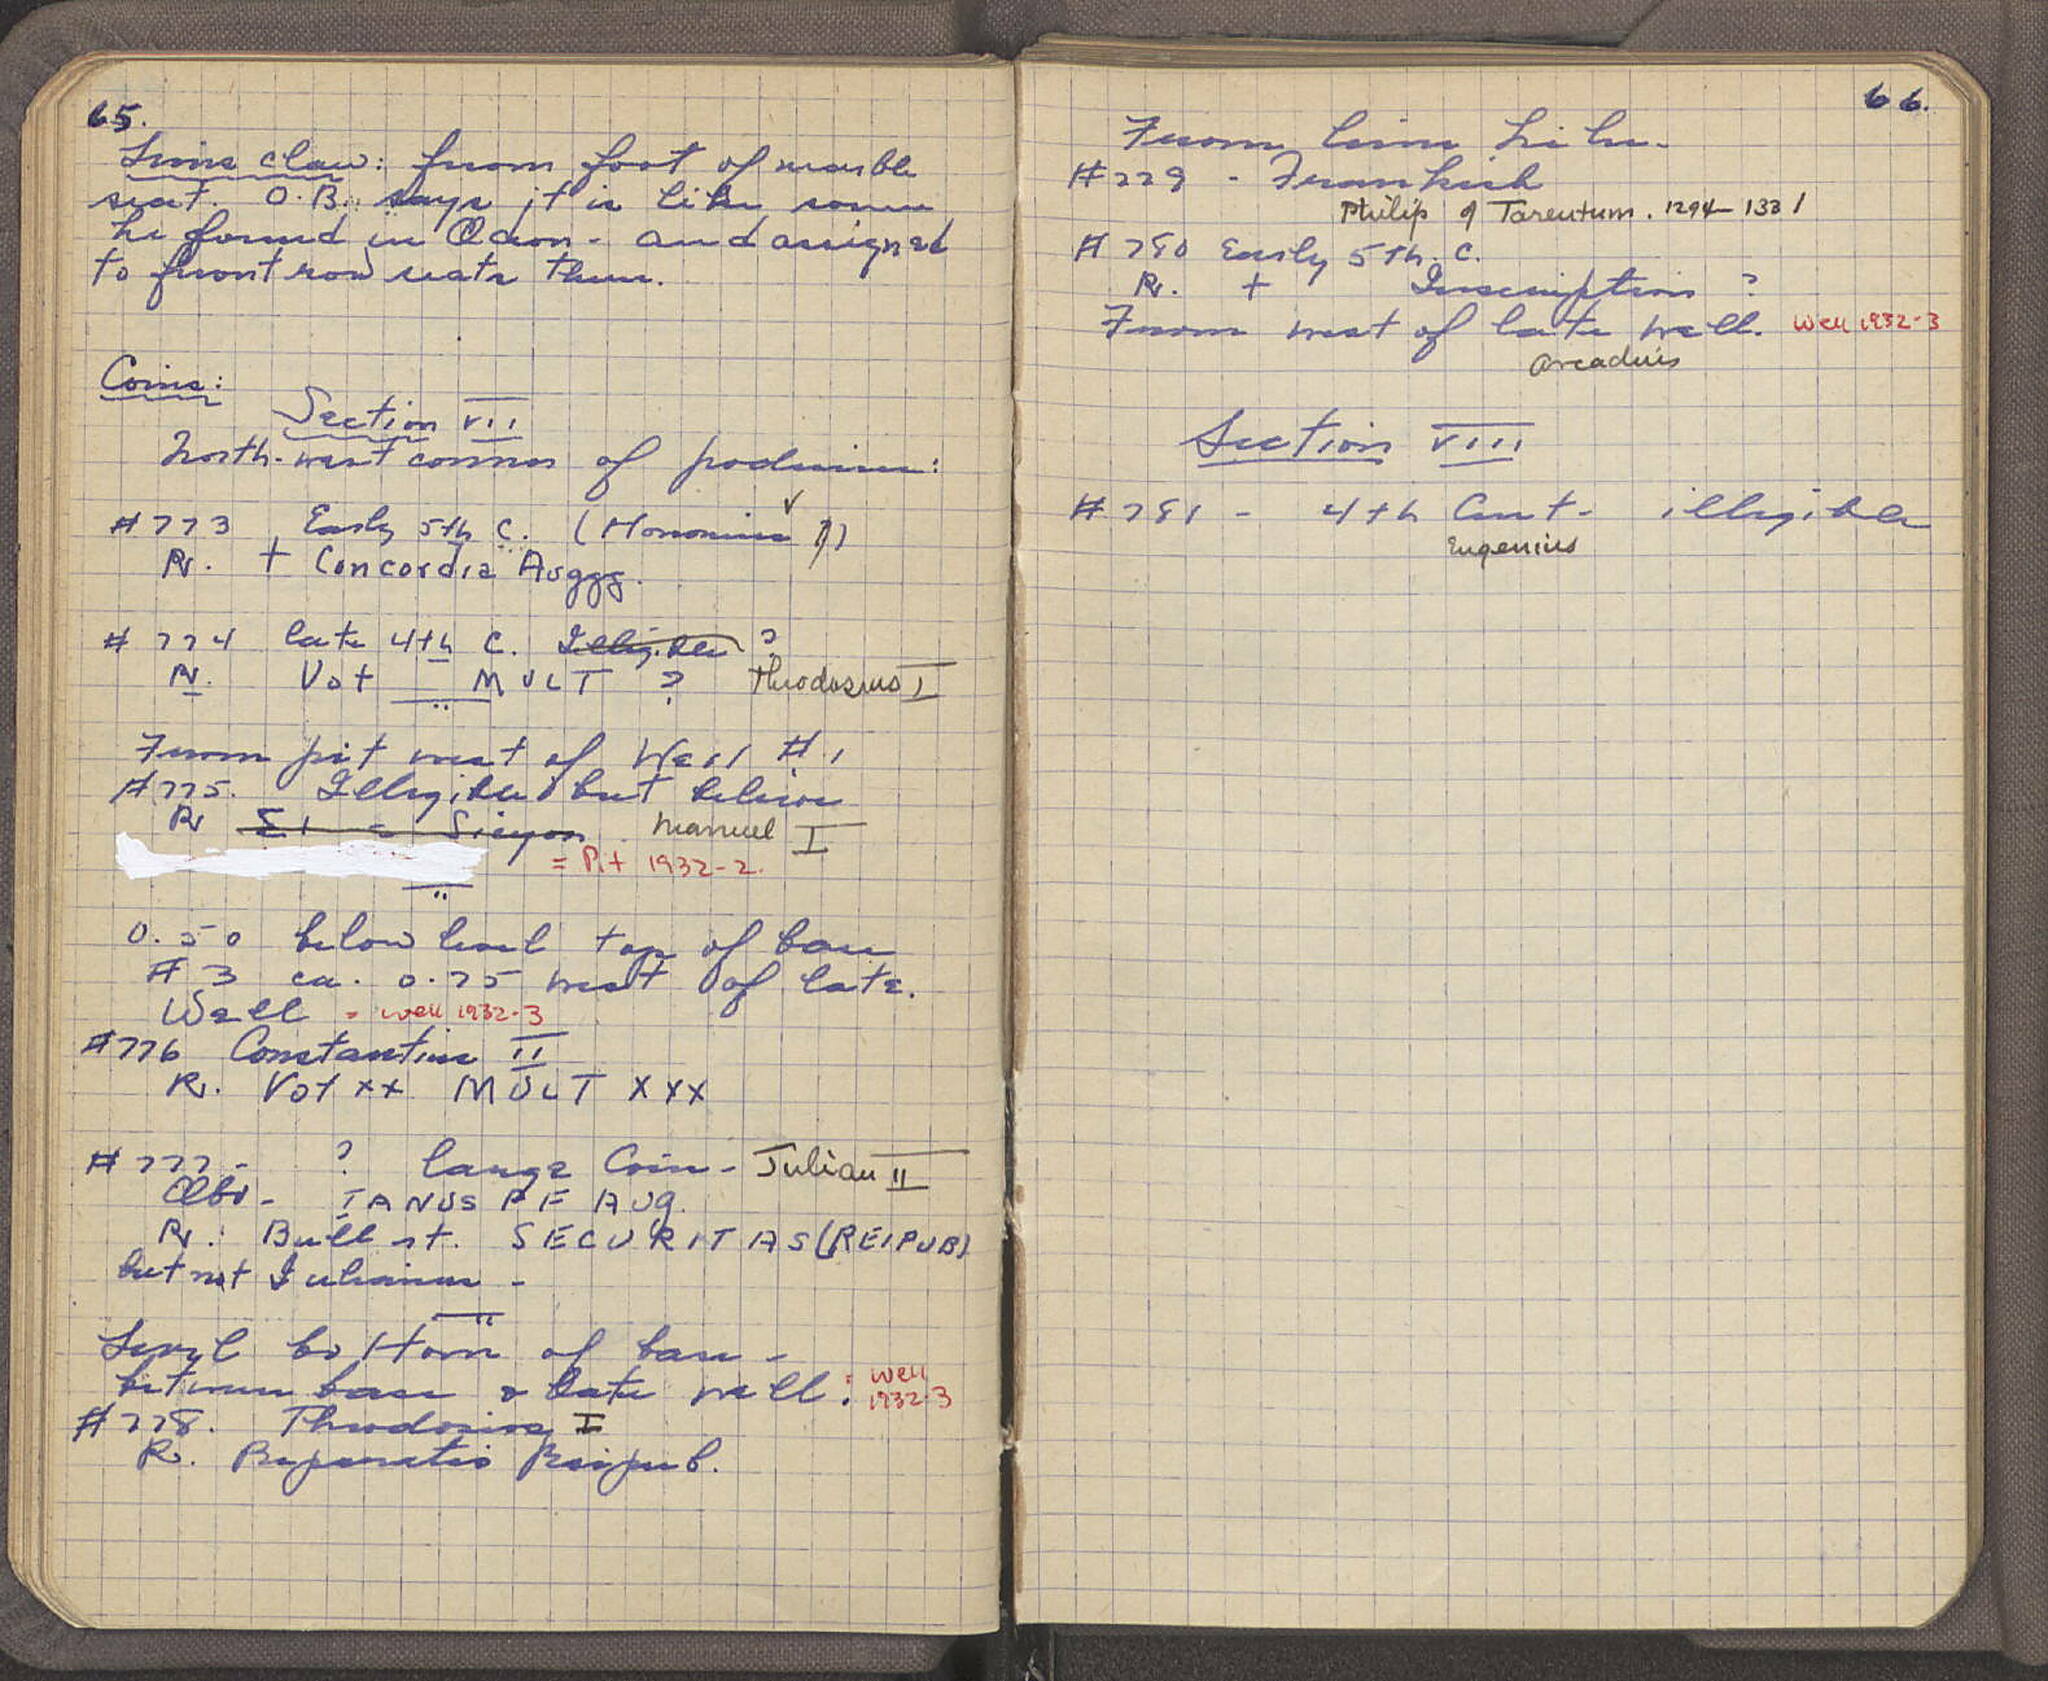 65.
Lion's claw: from foot of marble
seat. O.B. says it is like some
he found in Odeon - and assigned
to front row seats there.
Coins:
Section VII
North-west corner of podium:
#773 Early 5th C. (Honorius ?)
R. + Concordia Auggg.
#774 late 4th C. Illegible ?
R. Vot MULT ? Theodosius I
From pit west of Well #1
#775. Illegible but believe
R Σ1 = Sicyon Manuel I
= Pit 1932-2.
0.50 below level top of base
#3 ca. 0.75 west of late.
Well = Well 1932-3
#776 Constantius II
R. Vot XX MULT XXX
#777- ? large Coin- Julian II
Obv- IANUS PF AUG.
R. Bull st. SECURITAS (REIPUB)
but not Iulianus -
Level bottom of base -
between base & late well: = well
1932-3
#778. Theodosius I
R. Reparatio Reipub.
66.
From lime kiln.
#779 - Frankish
Philip of Tarentum. 1294-1331
#780 Early 5th. C.
R. + Inscription ?
From west of late well. Well 1932-3
Arcadius
Section VIII
#781 - 4th Cent- illegible
Eugenius